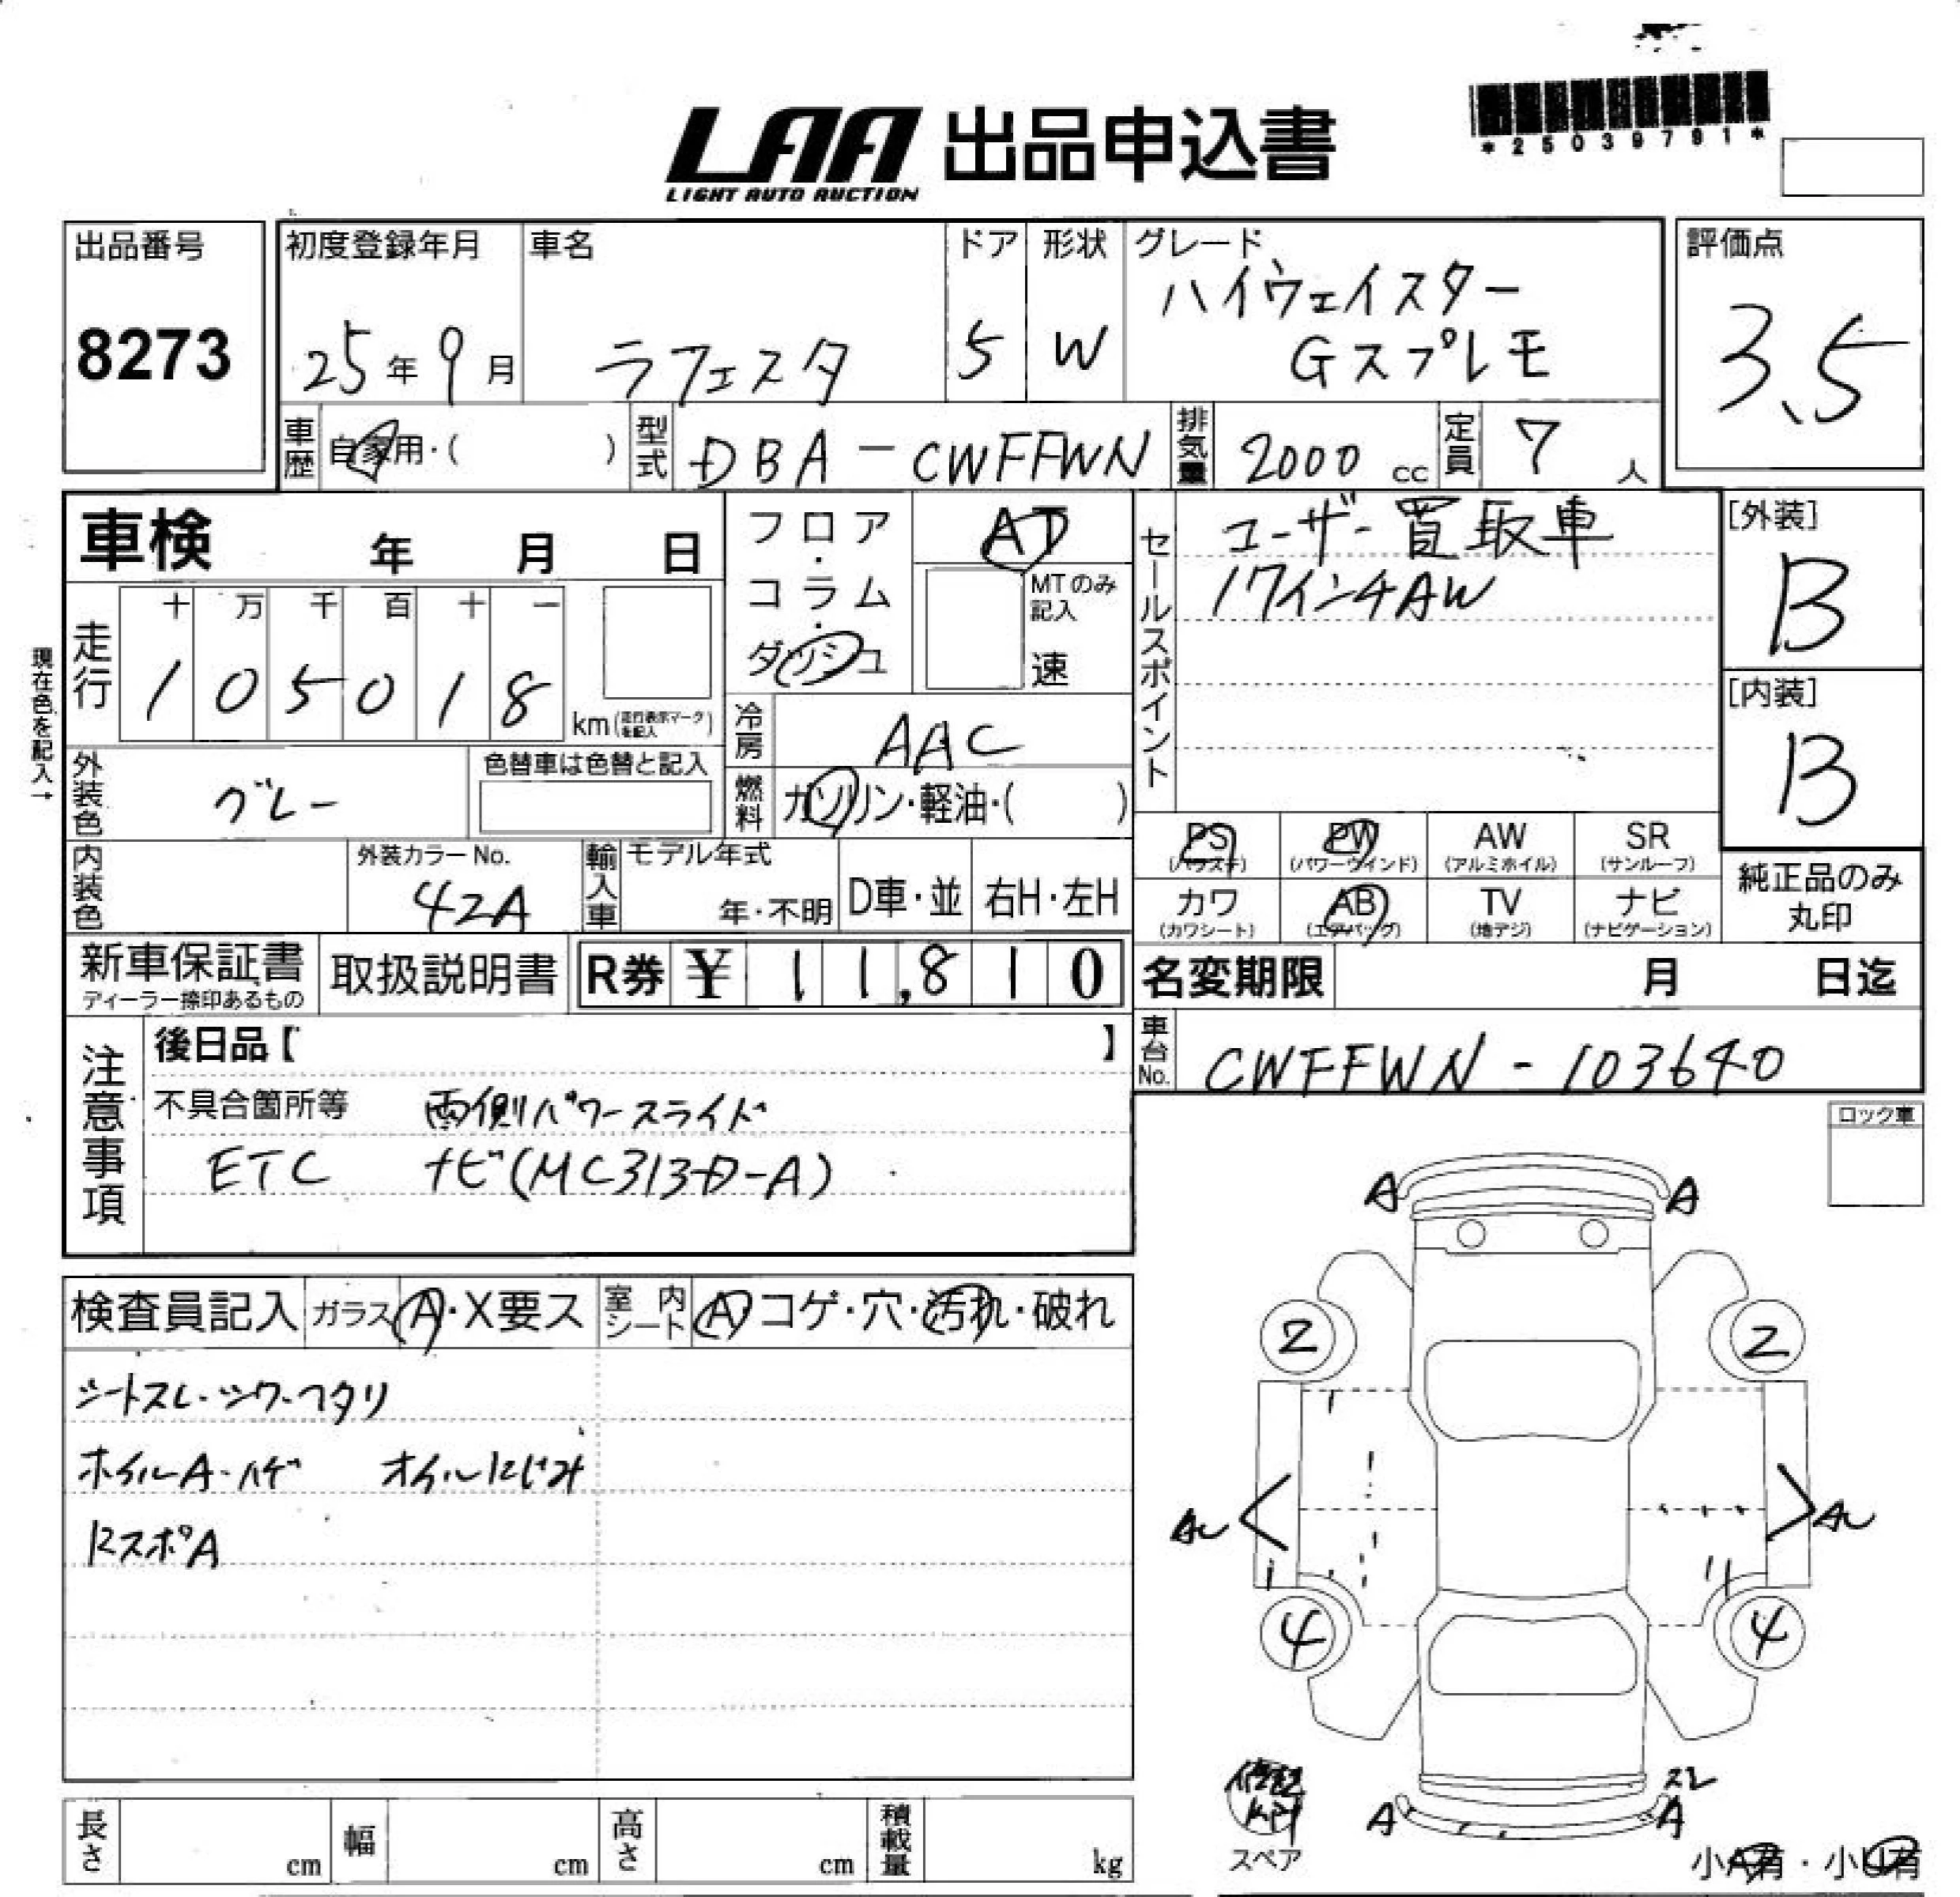 LAA 出品申込書
LIGHT AUTO AUCTION
*25039791*
出品番号
8273
初度登録年月
25年9月
車名
ラフェスタ
ドア
5
形状
W
グレード
ハイウェイスター
Gスプレモ
評価点
3.5
車歴
自家用・( )
型式
DBA-CWFFWN
排気量
2000 cc
定員
7 人
車検 年 月 日
現在色を記入→
走行
十 万 千 百 十 一
1 0 5 0 1 8
km(走行表示マークを記入)
フロア・コラム・ダッシュ
AT
MTのみ記入
速
冷房
AAC
燃料
ガソリン・軽油・( )
外装色
グレー
色替車は色替と記入
内装色
外装カラーNo.
42A
輸入車
モデル年式
年・不明
D車・並
右H・左H
セールスポイント
ユーザー買取車
17インチAW
[外装]
B
[内装]
B
PS (パワステ)
PW (パワーウィンド)
AW (アルミホイル)
SR (サンルーフ)
カワ (カワシート)
AB (エアバッグ)
TV (地デジ)
ナビ (ナビゲーション)
純正品のみ
丸印
新車保証書
ディーラー捺印あるもの
取扱説明書
R券 ¥ 11,810
名変期限 月 日迄
車台No.
CWFFWN-103640
注意事項
後日品【 】
不具合箇所等 両側パワースライド
ETC ナビ(MC313D-A)
ロック車
検査員記入
ガラス A・X要ス
室内シート A コゲ・穴・汚れ・破れ
シートスレ・シワ・フタリ
ホイルA・ハゲ オイルにじみ
RスポA
A A
2 2
AU AU
4 4
スレ
A A
スペア
小A有・小U有
長さ cm
幅 cm
高さ cm
積載量 kg